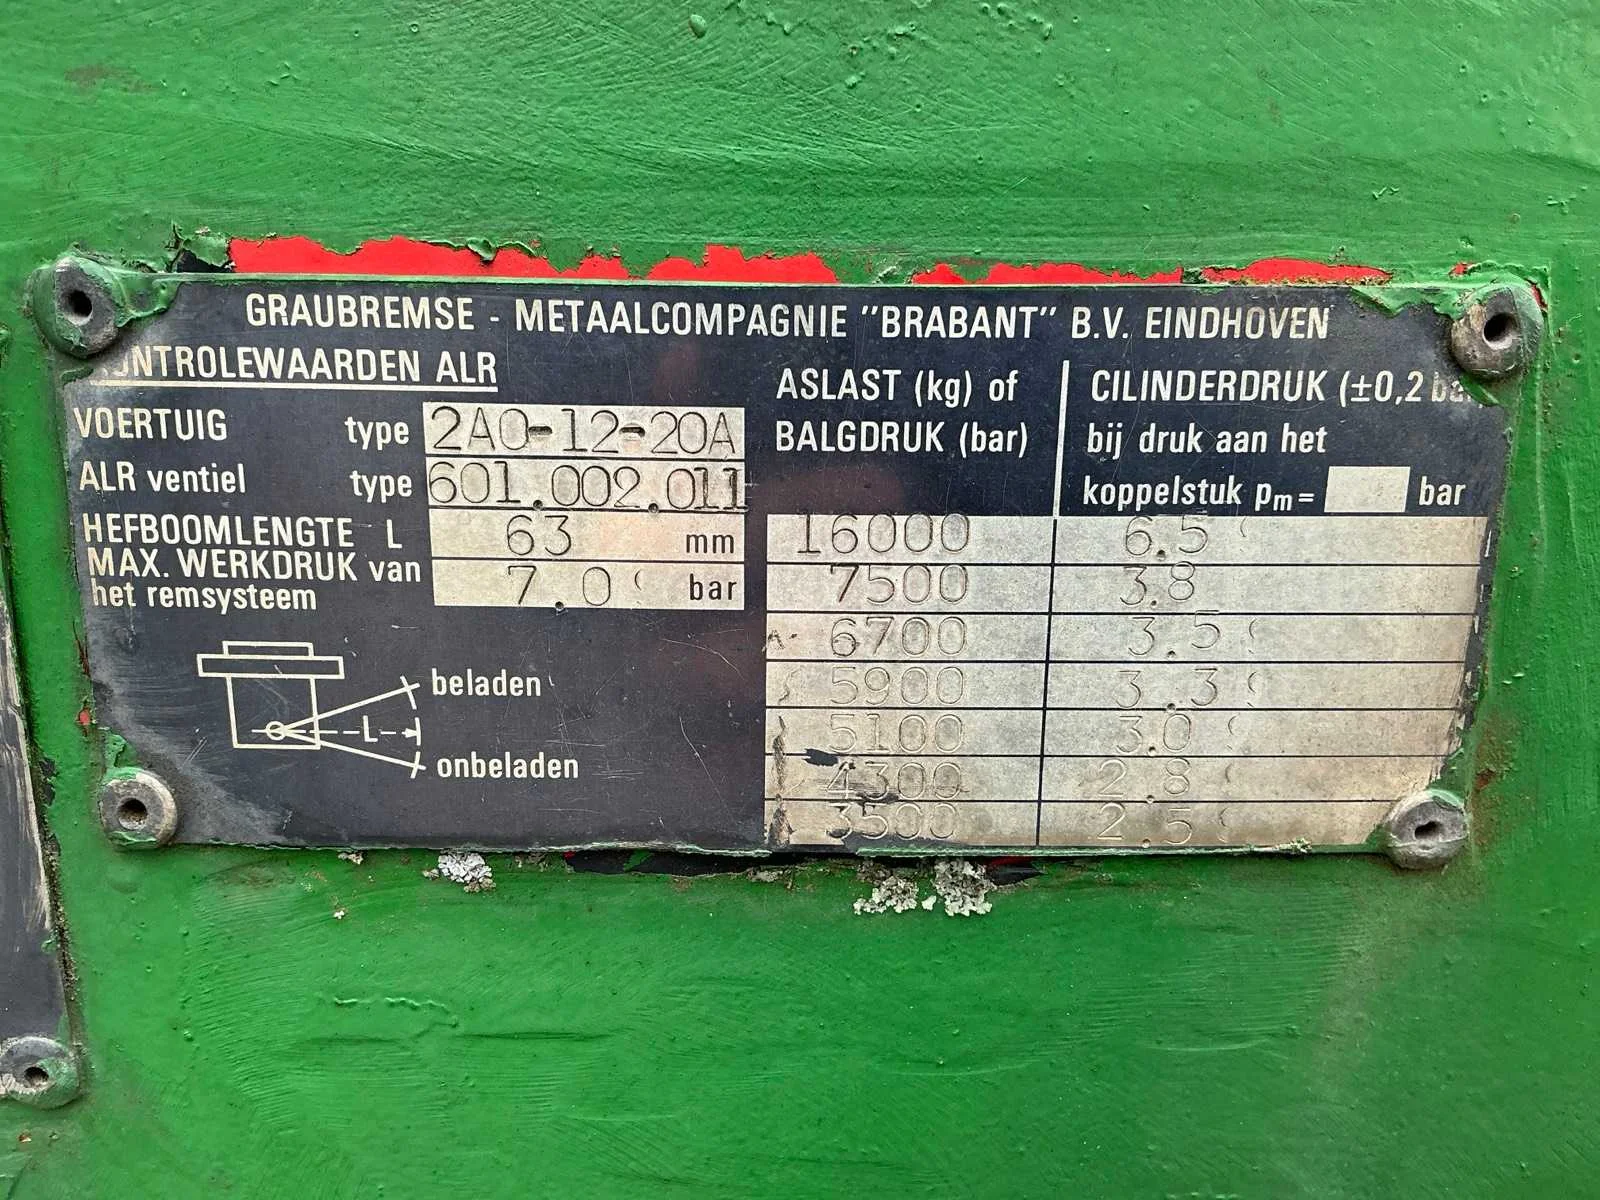 GRAUBREMSE - METAALCOMPAGNIE "BRABANT" B.V. EINDHOVEN
KONTROLEWAARDEN ALR
VOERTUIG type 2AO-12-20A
ALR ventiel type 601.002.011
HEFBOOMLENGTE L 63 mm
MAX. WERKDRUK van
het remsysteem 7.0 bar
beladen
L
onbeladen
ASLAST (kg) of
BALGDRUK (bar)
CILINDERDRUK (±0,2 bar)
bij druk aan het
koppelstuk pm= bar
16000 6.5
7500 3.8
6700 3.5
5900 3.3
5100 3.0
4300 2.8
3500 2.5